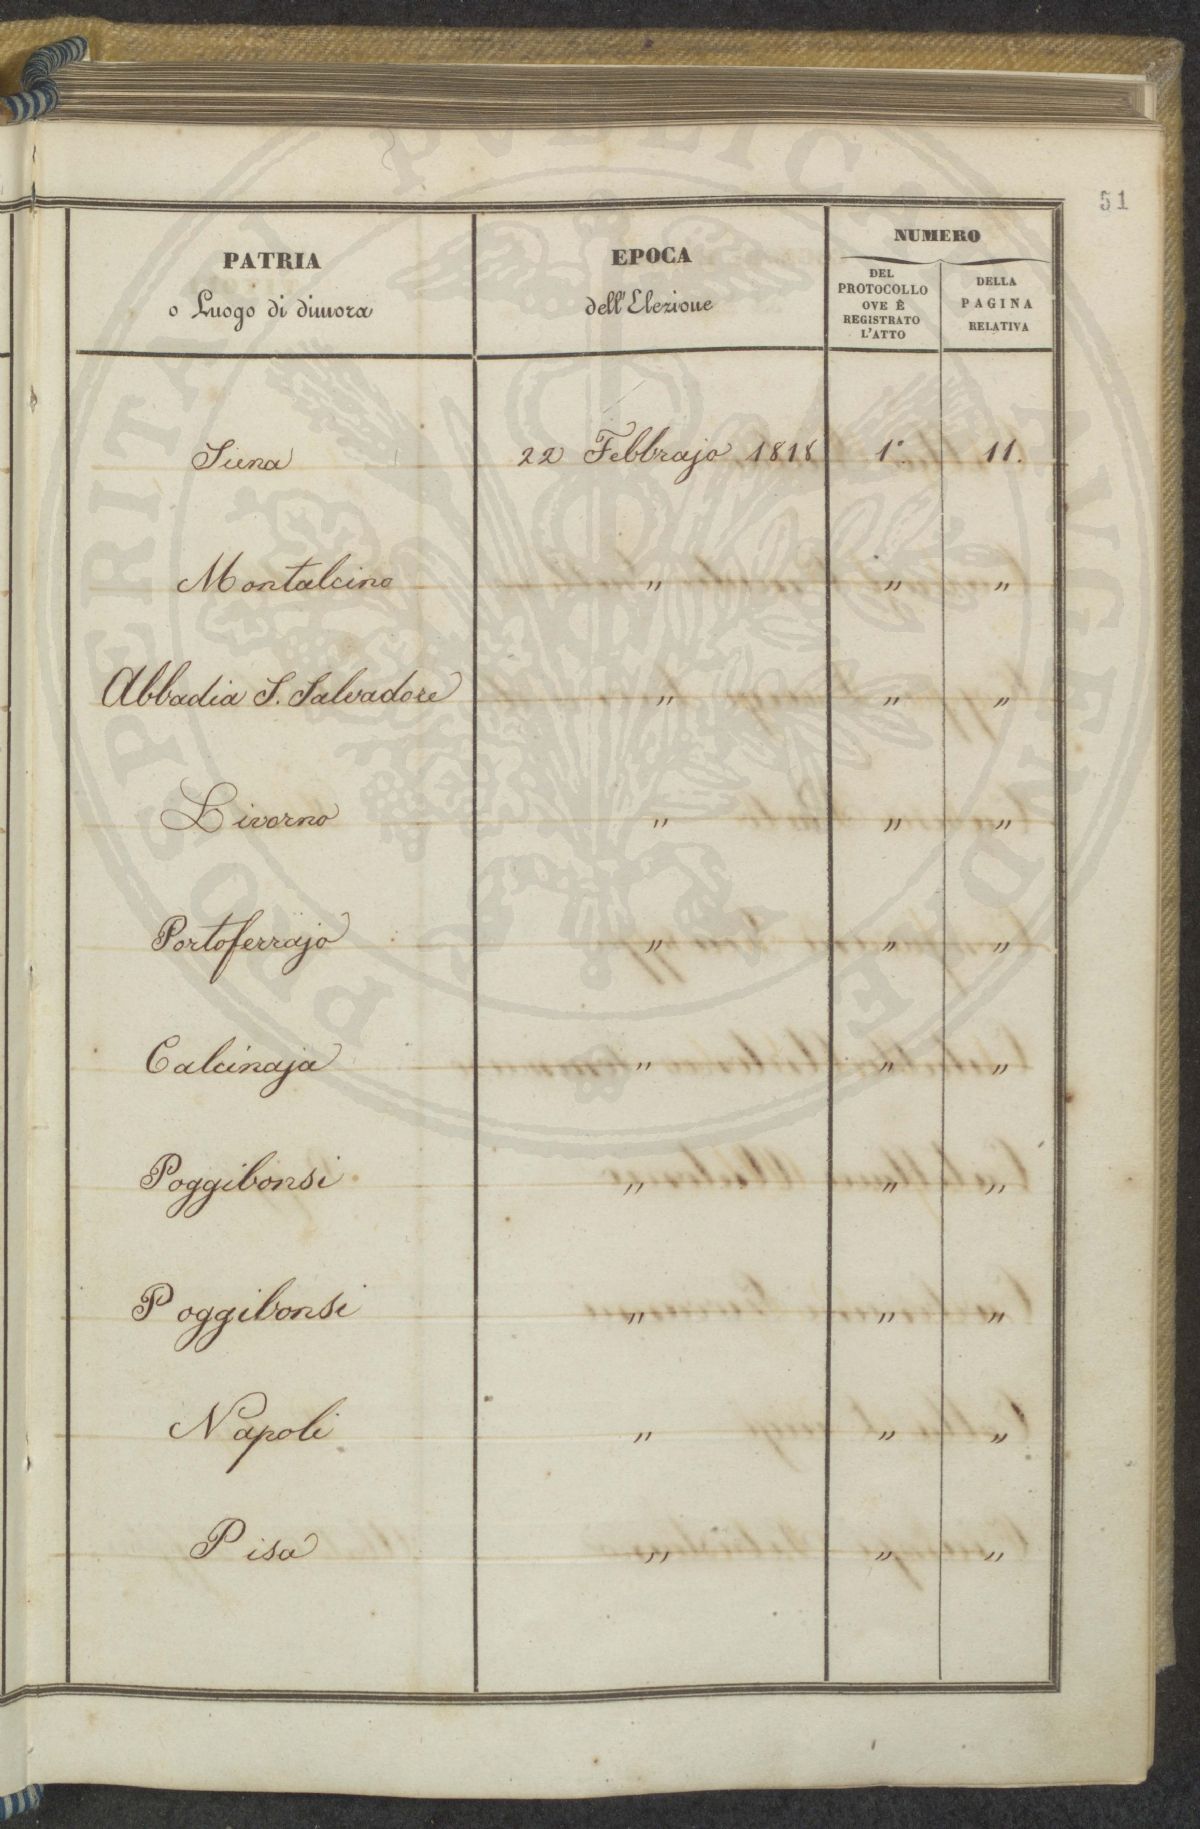 51
PATRIA
o Luogo di dimora
EPOCA
dell'Elezione
NUMERO
DEL
PROTOCOLLO
OVE È
REGISTRATO
L'ATTO
DELLA
PAGINA
RELATIVA
Siena 22 Febbrajo 1818 1° 11.
Montalcino " " "
Abbadia S. Salvadore " " "
Livorno " " "
Portoferrajo " " "
Calcinaja " " "
Poggibonsi " " "
Poggibonsi " " "
Napoli " " "
Pisa " " "
PROSPERITATI PUBLICAE AUGENDAE